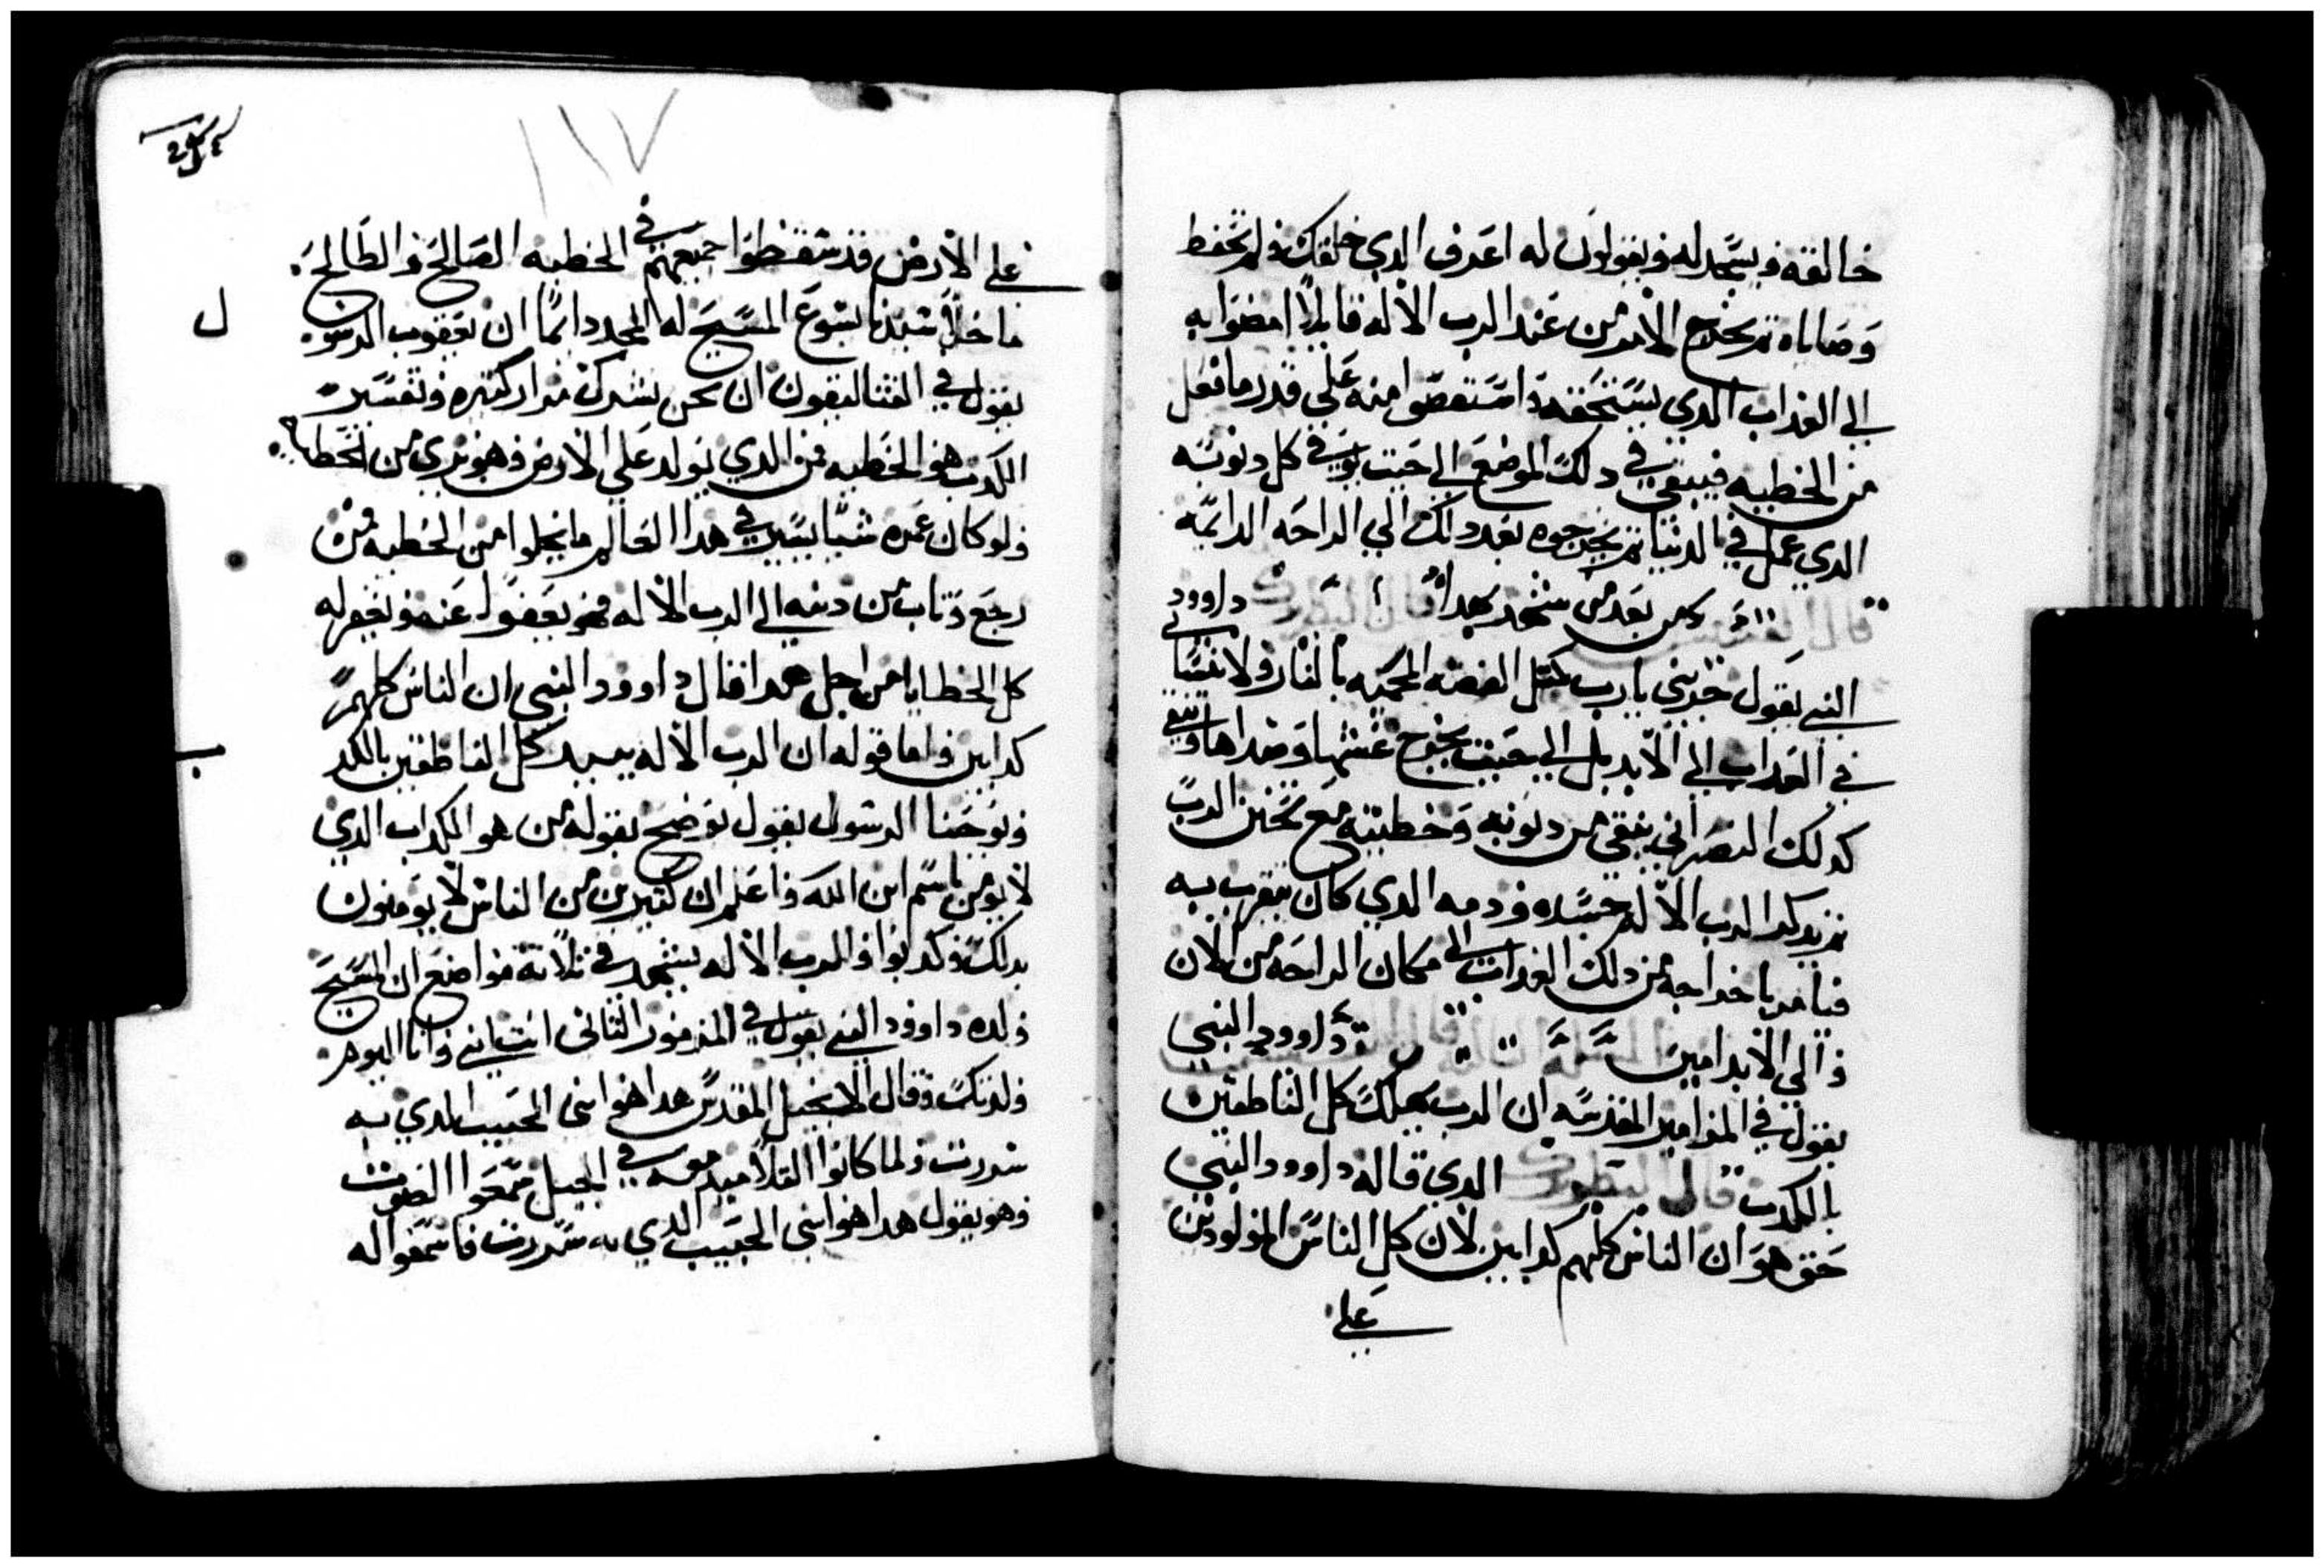 خالقه ويسجد له ويقولون له اعرف الدي خلقك ولم تحفظ
وصاياه ثم يخرج الامر من عند الرب الاله قايلا امضوا به
الي العداب الدي يستحقه واستقصوا منه علي قدر ما فعل
من الخطيه فيبقي في دلك الموضع الي حيت يوفي كل دنوبه
الدي عمل في الدنيا ثم يخرجوه بعد دلك الي الراحه الدايمه
قال من بعد من داوود
النبي يقول جربني يارب مثل الفضه المحميه بالنار ولا
في العداب الي الابد بل الي حيت يخرج غشها وصداها وتنقي
كدلك النصراني ينقي من دنوبه وخطيته مع تحنن الرب
ثم يدكر الرب الاله جسده ودمه الدي كان يتقرب به
فيامر باخراجه من دلك العداب الي مكان الراحه من الان
والي الابد امين داوود النبي
يقول في المزامير المقدسه ان الرب يهلك كل الناطقين
بالكدب قال الدي قاله داوود النبي
حق هو ان الناس كلهم كدابين لان كل الناس المولودين
علي
١١٧
علي الارض قد سقطوا جميعهم في الخطيه الصالح والطالح
ما خلا سيدنا يسوع المسيح له المجد دايما ان يعقوب الرسول
يقول في القتاليقون ان نحن نشرك مرار كتيره وتفسير
الكدب هو الخطيه من الدي يولد علي الارض وهو بري من الخطا
ولو كان عمره شيا يسير في هدا العالم ما يخلوا من الخطيه من
رجع وتاب من دنبه الي الرب الاله فهو يعفوا عنه ويغفر له
كل الخطايا من اجل هدا قال داوود النبي ان الناس كلهم
كدابين واما قوله ان الرب الاله يبيد كل الناطقين بالكدب
ويوحنا الرسول يقول يوضح بقوله من هو الكداب الدي
لا يومن باسم ابن الله واعلم ان كتيرين من الناس لا يومنون
بدلك وكدبوا والرب الاله يشهد في تلاتة مواضع ان المسيح
ولده داوود النبي يقول في المزمور التاني انت ابني وانا اليوم
ولدتك وقال الانجيل المقدس هدا هو ابني الحبيب الدي به
سررت ولما كانوا التلاميد معه في الجبل سمعوا الصوت
وهو يقول هدا هو ابني الحبيب الدي به سررت فاسمعوا له